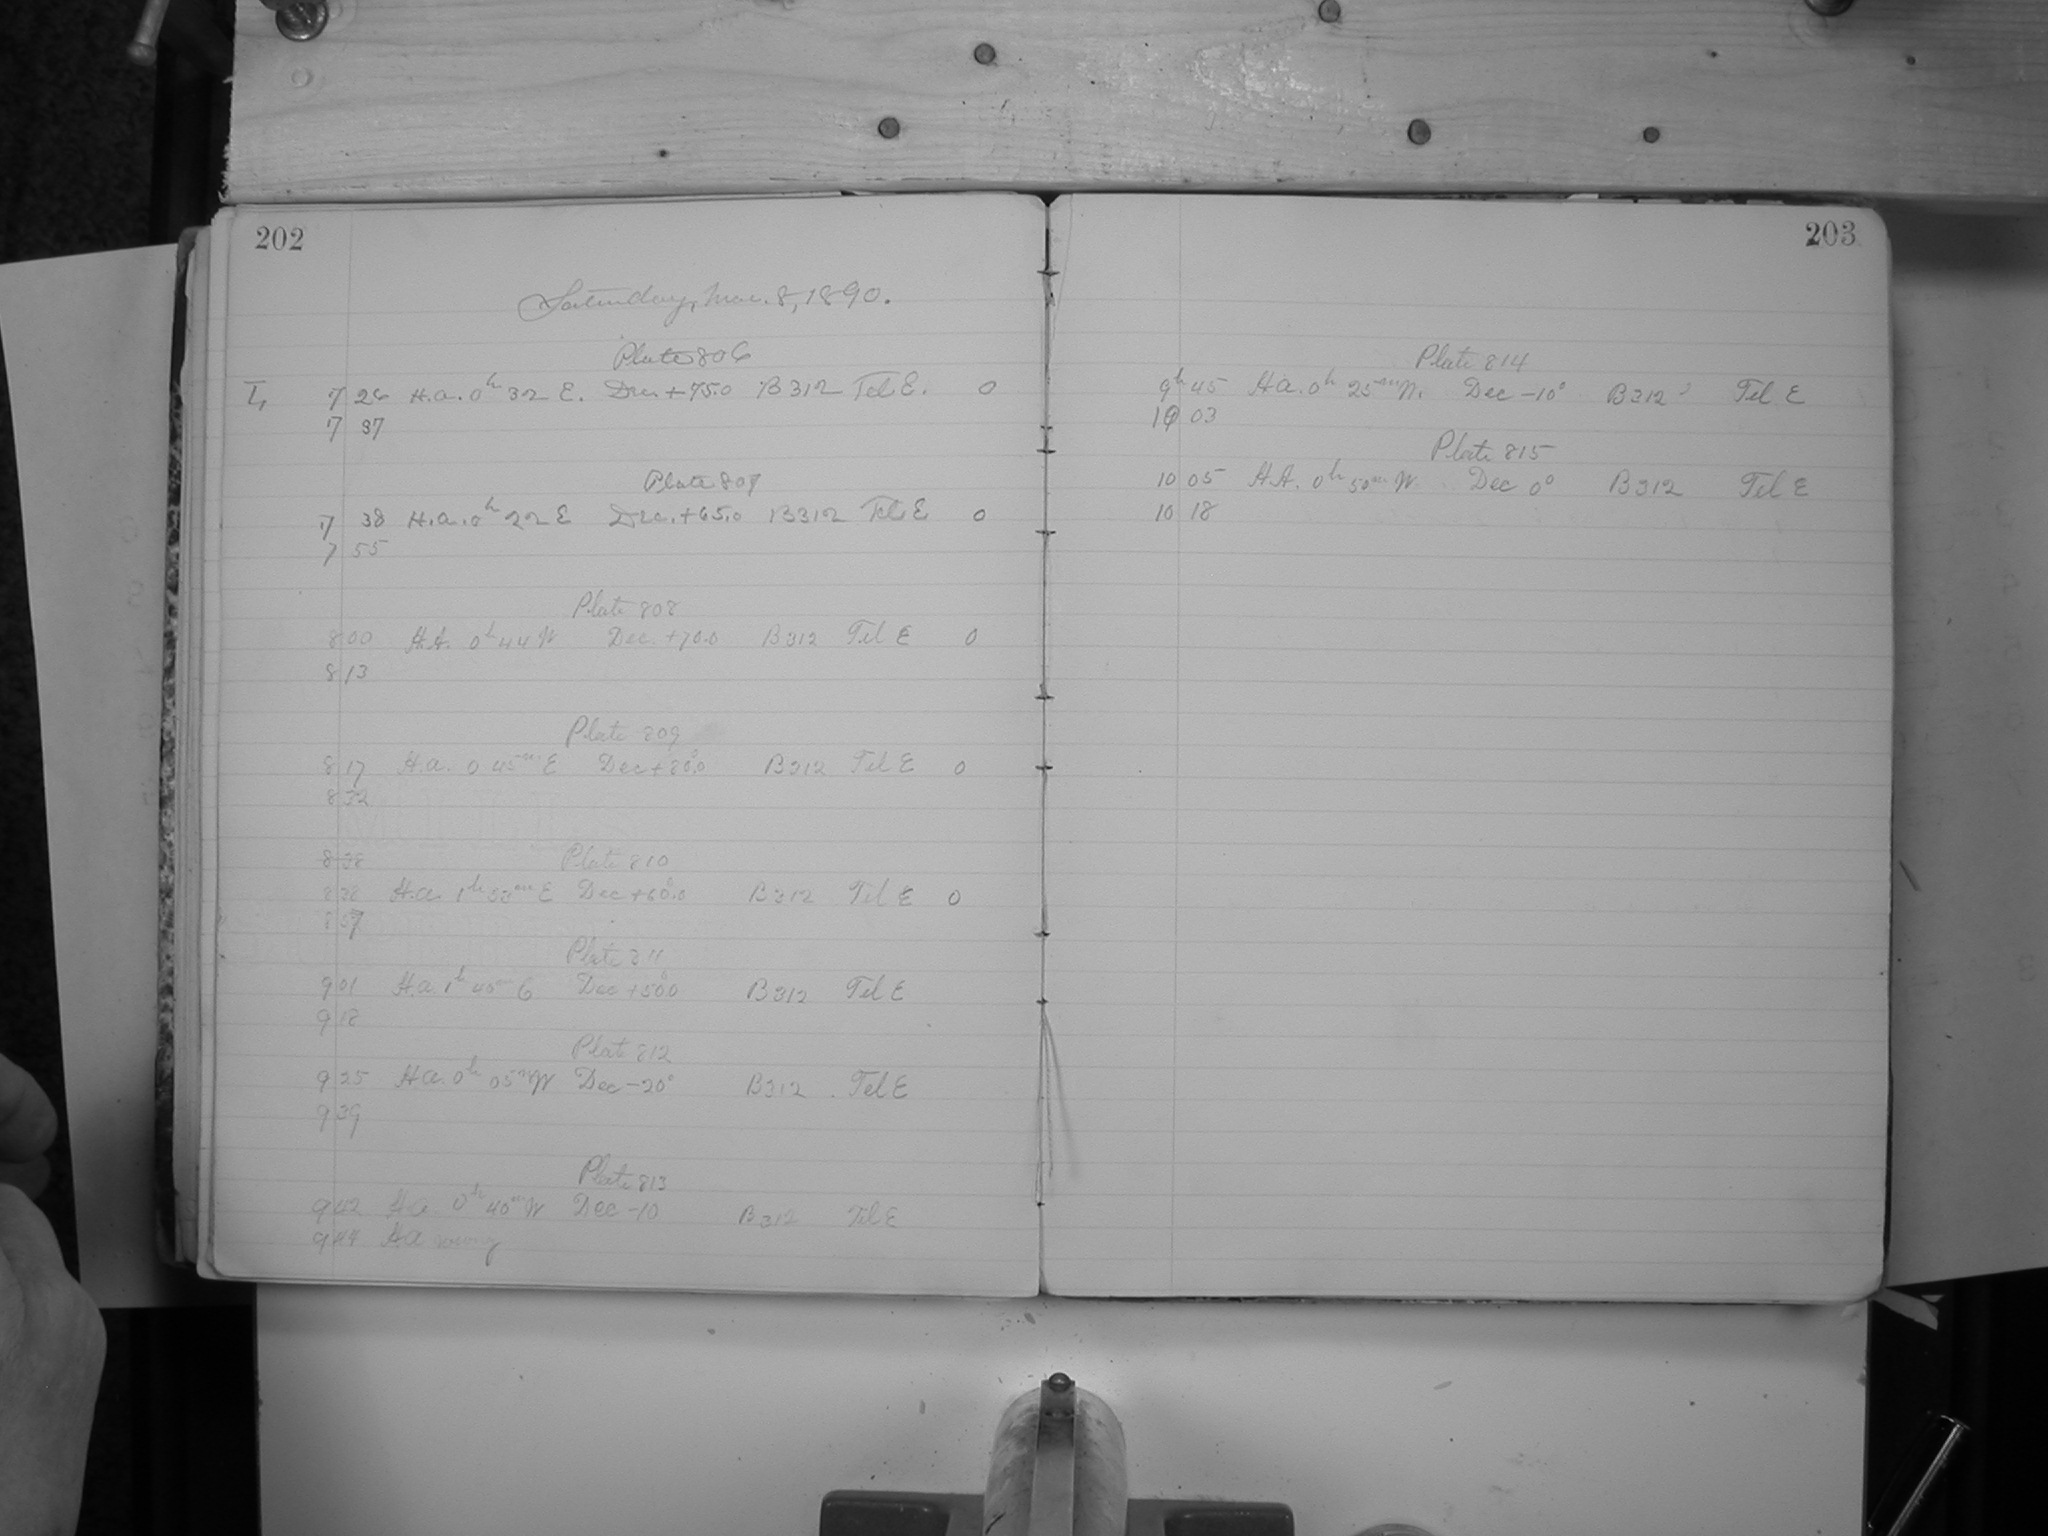 202
Saturday, Mar. 8, 1890.
Plate 806
I, 7 26 H.a. 0h 32 E. Dec. +75.0 B312 Tel E. 0
7 37
Plate 807
7 38 H.a. 0h 22 E Dec. +65.0 B312 Tel. E 0
7 55
Plate 808
8 00 H.A. 0h 44 W Dec. +70.0 B312 Tel E 0
8 13
Plate 809
8 17 H.a. 0 45m E Dec +80°.0 B312 Tel E 0
8 32
8 38 Plate 810
8 38 H.a. 1h 53m E Dec +60°.0 B312 Tel E 0
8 57
Plate 811
9 01 H.a. 1h 40m E Dec +50°0 B312 Tel E
9 18
Plate 812
9 25 Ha. 0h 05m W Dec -20° B312 Tel E
9 39
Plate 813
9 42 Ha 0h 40m W Dec -10 B312 Tel E
9 44 H.A wrong
203
Plate 814
9h 45 Ha. 0h 25m W. Dec -10° B312 Tel E
10 03
Plate 815
10 05 H.A. 0h 50m W. Dec 0° B312 Tel E
10 18